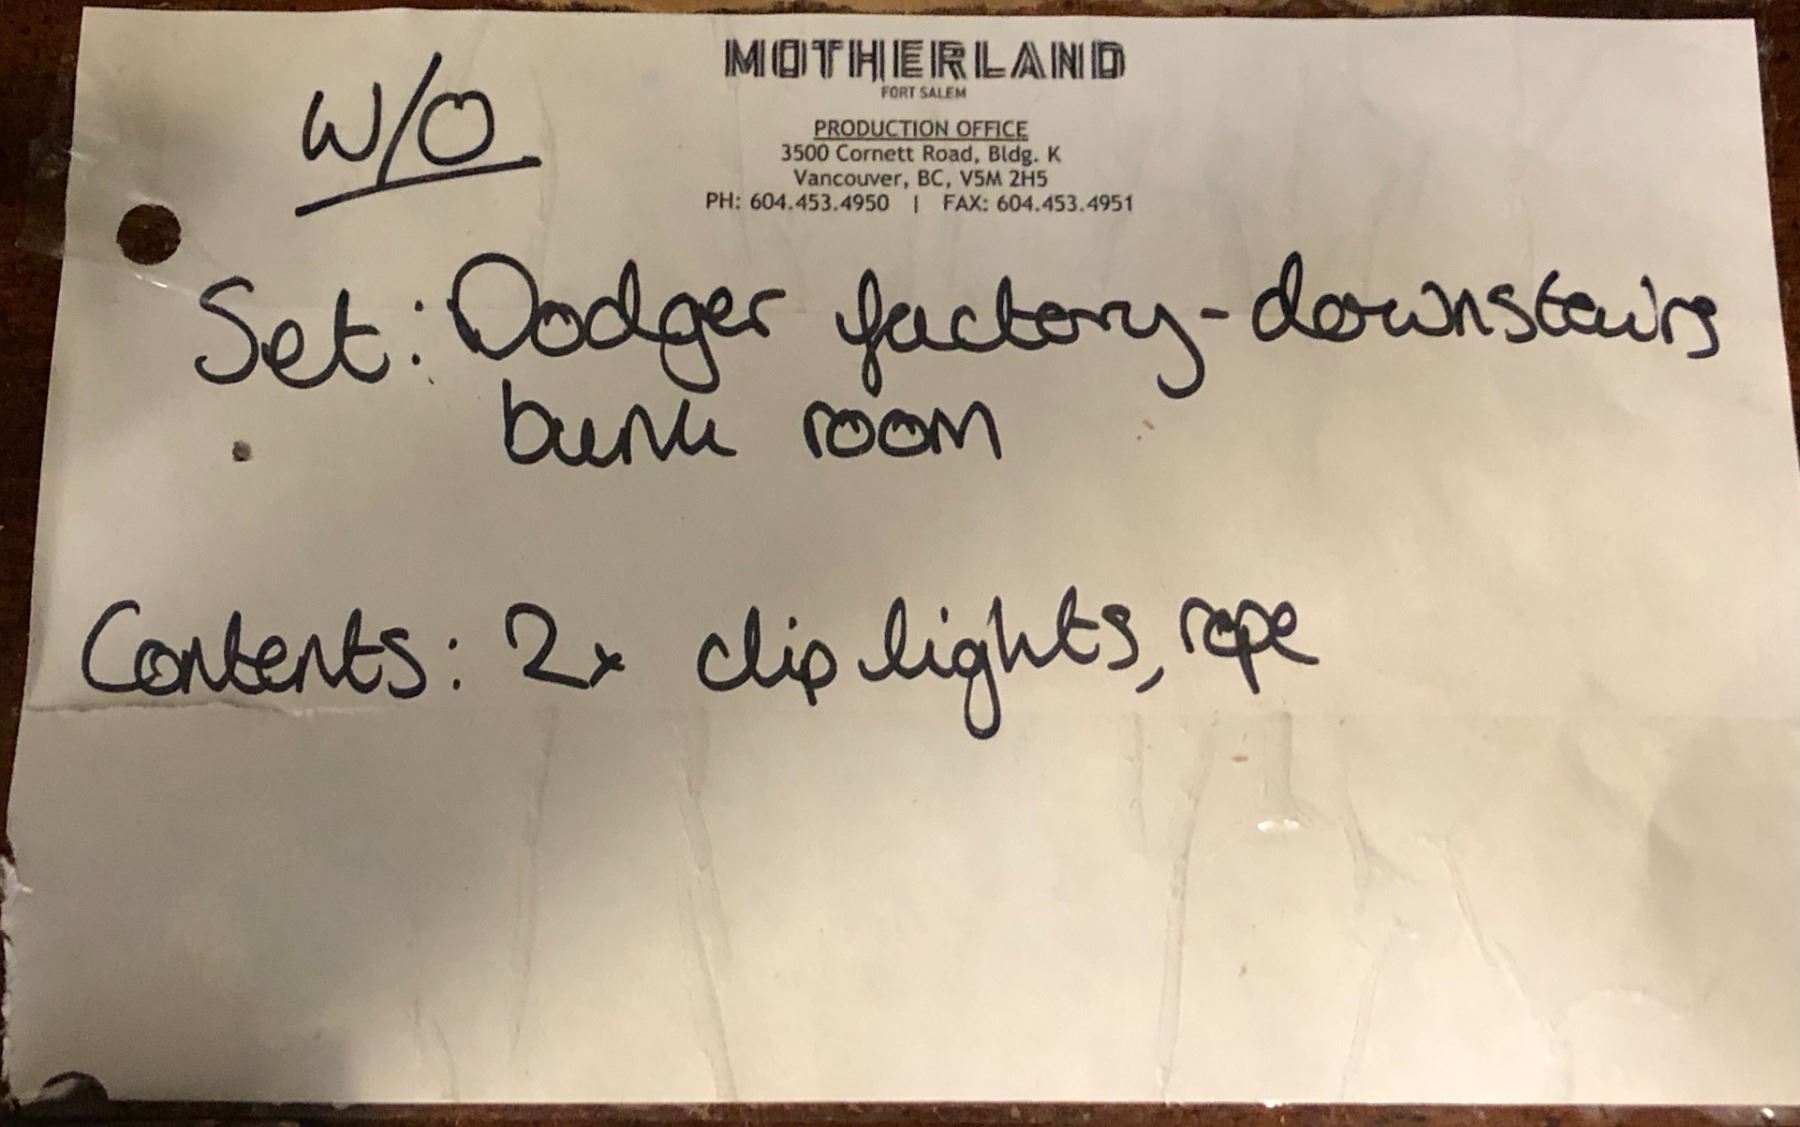 W/O
MOTHERLAND
FORT SALEM
PRODUCTION OFFICE
3500 Cornett Road, Bldg. K
Vancouver, BC, V5M 2H5
PH: 604.453.4950 | FAX: 604.453.4951
Set: Dodger factory - downstairs
bunk room
Contents: 2x clip lights, rope